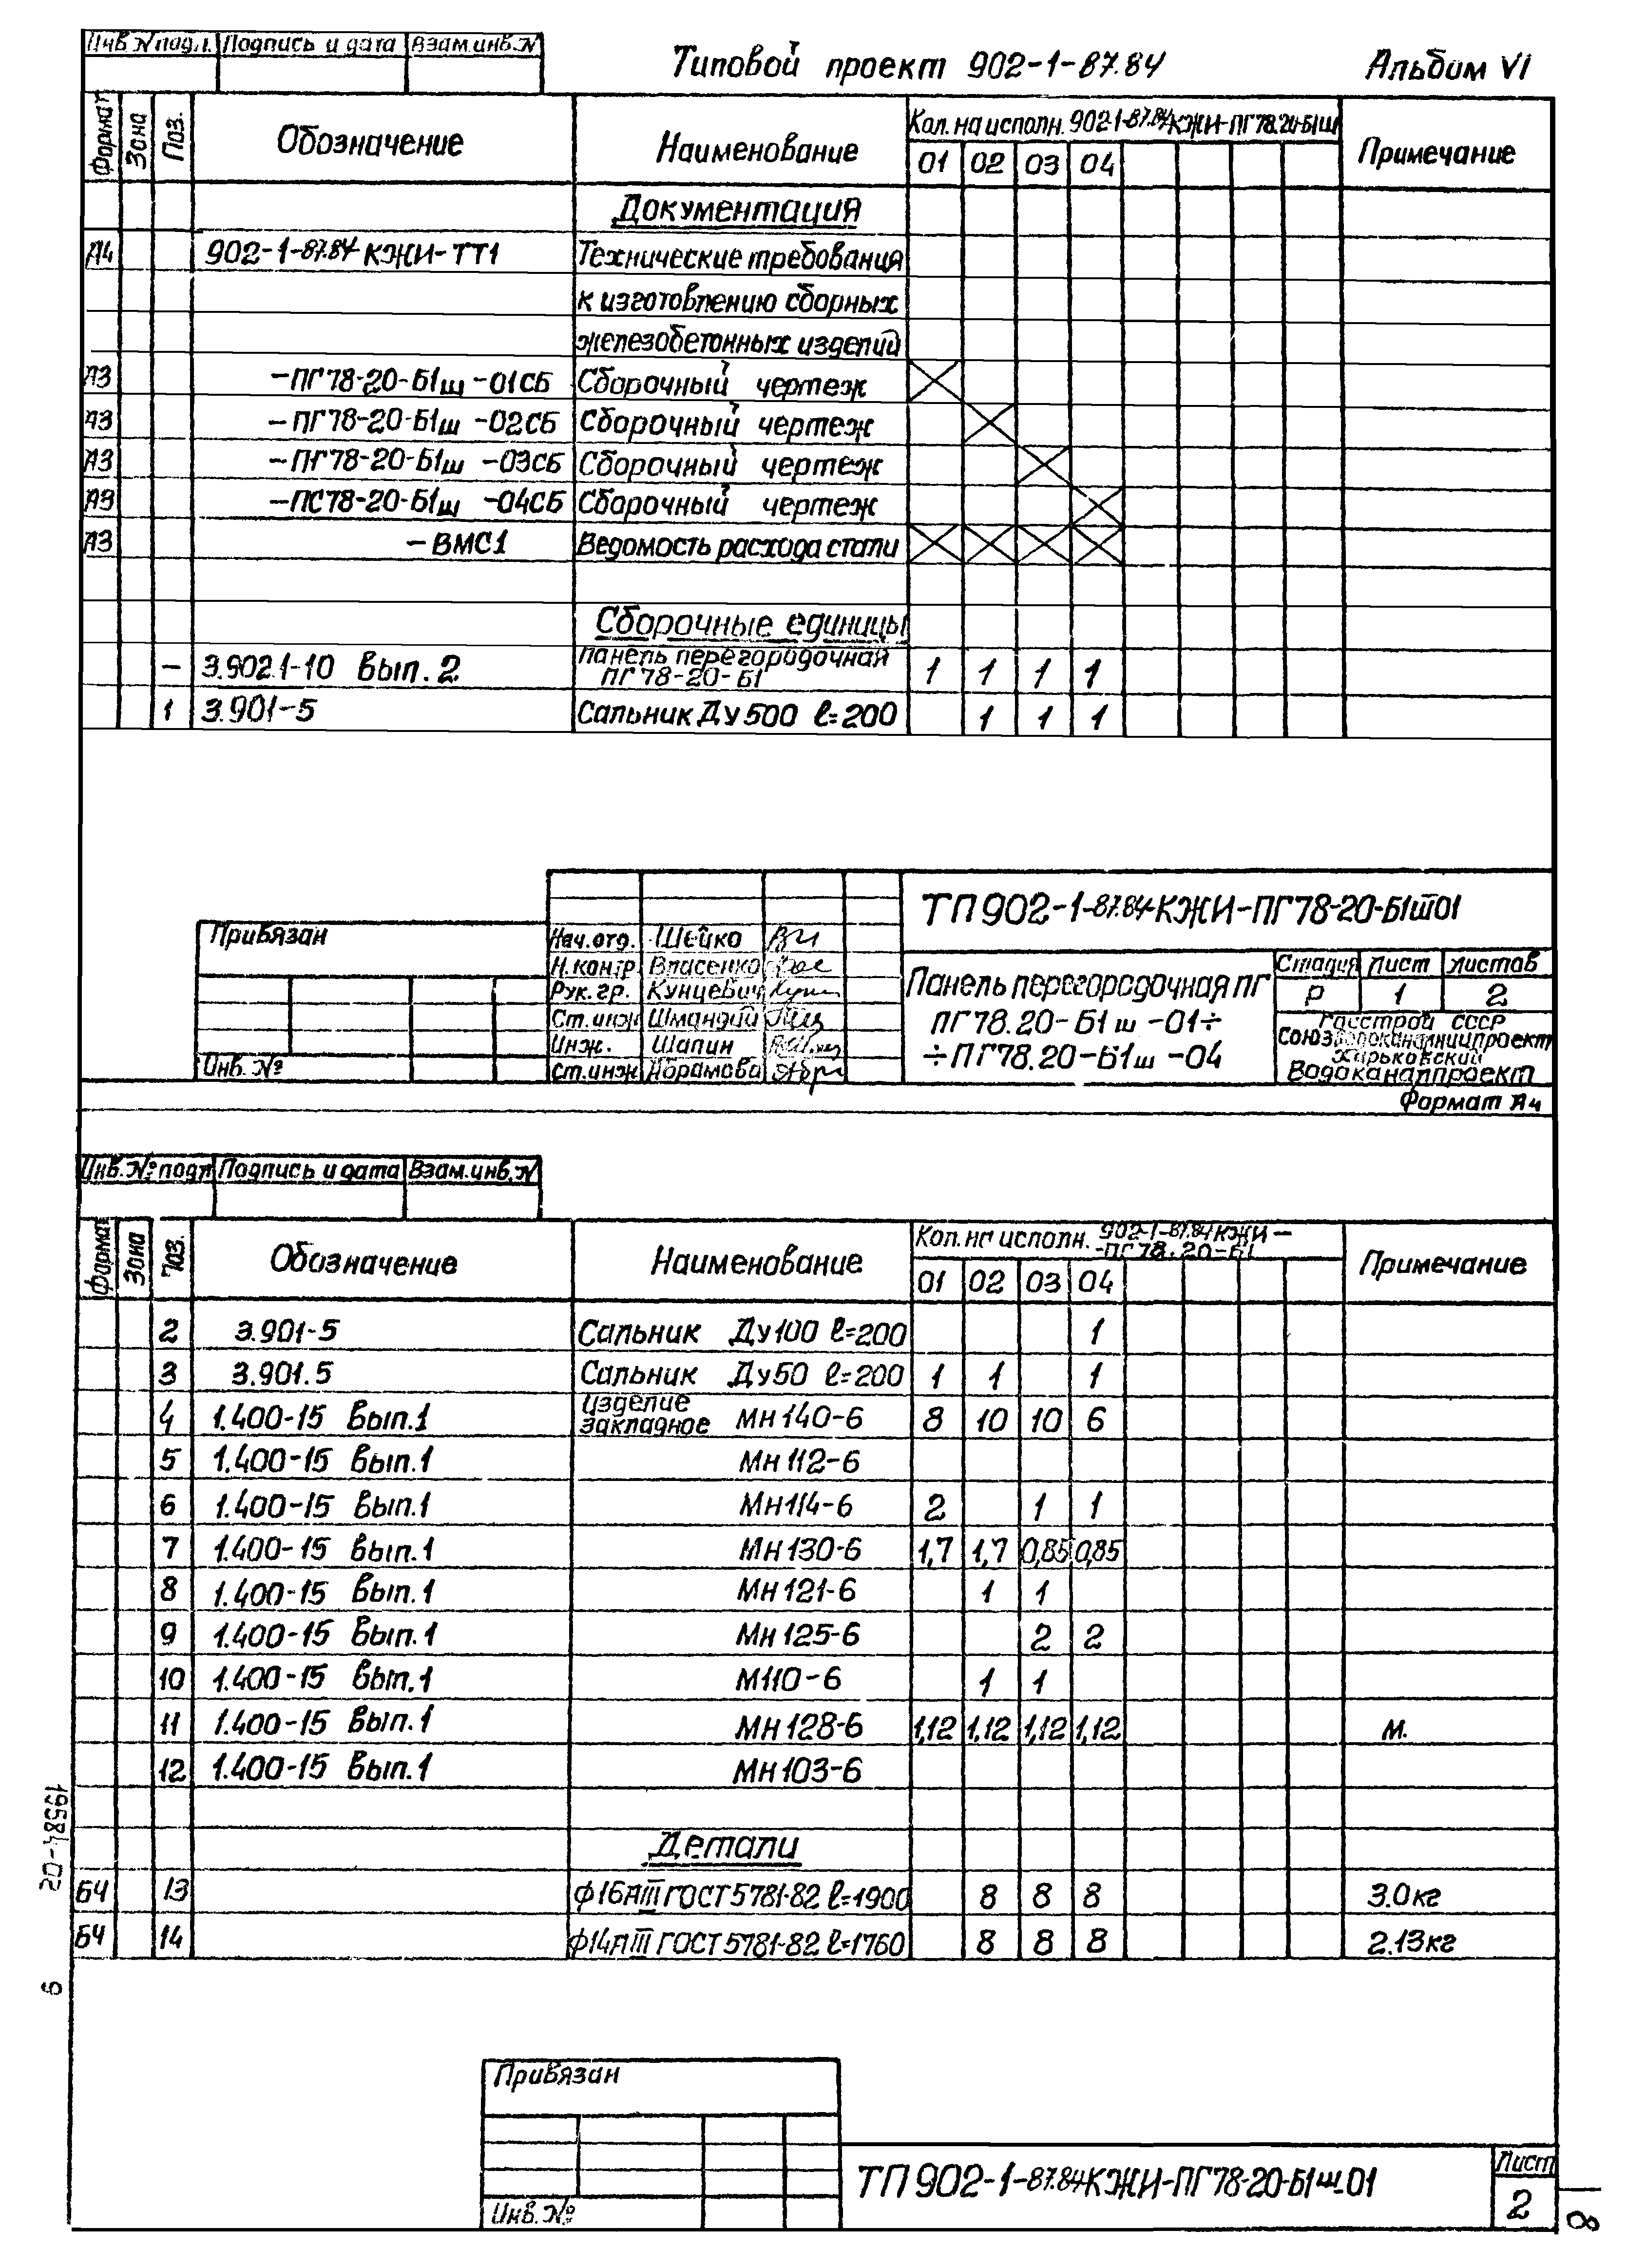 Инв.N подл. Подпись и дата Взам.инв.N
Типовой проект 902-1-87.84 Альбом VI
Формат Зона Поз. Обозначение Наименование Кол. на исполн. 902-1-87.84 КЖИ-ПГ78.20-Б1ш Примечание
01 02 03 04
Документация
А4 902-1-87.84 КЖИ-ТТ1 Технические требования
к изготовлению сборных
железобетонных изделий
А3 -ПГ78-20-Б1ш -01СБ Сборочный чертеж
А3 -ПГ78-20-Б1ш -02СБ Сборочный чертеж
А3 -ПГ78-20-Б1ш -03СБ Сборочный чертеж
А3 -ПС78-20-Б1ш -04СБ Сборочный чертеж
А3 -ВМС1 Ведомость расхода стали
Сборочные единицы
- 3.902.1-10 Вып. 2 Панель перегородочная 1 1 1 1
ПГ78-20-Б1
1 3.901-5 Сальник Ду500 ℓ=200 1 1 1
ТП902-1-87.84-КЖИ-ПГ78-20-Б1ш01
Привязан
Нач.отд. Шейко
Н.контр Власенко
Рук.гр. Кунцевич
Ст.инж Шмандий
Инж. Шапин
Ст.инж Абрамова
Инв. №
Панель перегородочная ПГ
ПГ78.20-Б1ш -01÷
÷ПГ78.20-Б1ш -04
Стадия Лист Листов
Р 1 2
Госстрой СССР
Союзводоканалниипроект
Харьковский
Водоканалпроект
Формат А4
Инв.№подл Подпись и дата Взам.инв.N
Формат Зона Поз. Обозначение Наименование Кол. на исполн. 902-1-87.84 КЖИ- Примечание
-ПГ78.20-Б1
01 02 03 04
2 3.901-5 Сальник Ду100 ℓ=200 1
3 3.901.5 Сальник Ду50 ℓ=200 1 1 1
4 1.400-15 Вып.1 Изделие закладное Мн140-6 8 10 10 6
5 1.400-15 Вып.1 Мн112-6
6 1.400-15 Вып.1 Мн114-6 2 1 1
7 1.400-15 Вып.1 Мн130-6 1,7 1,7 0,85 0,85
8 1.400-15 Вып.1 Мн121-6 1 1
9 1.400-15 Вып.1 Мн125-6 2 2
10 1.400-15 Вып.1 М110-6 1 1
11 1.400-15 Вып.1 Мн128-6 1,12 1,12 1,12 1,12 м.
12 1.400-15 Вып.1 Мн103-6
Детали
БЧ 13 ф16АIII ГОСТ5781-82 ℓ=1900 8 8 8 3.0кг
БЧ 14 ф14АIII ГОСТ5781-82 ℓ=1760 8 8 8 2.13кг
19584-02
9
Привязан
Инв.№
ТП902-1-87.84КЖИ-ПГ78-20-Б1ш-01
Лист
2
8